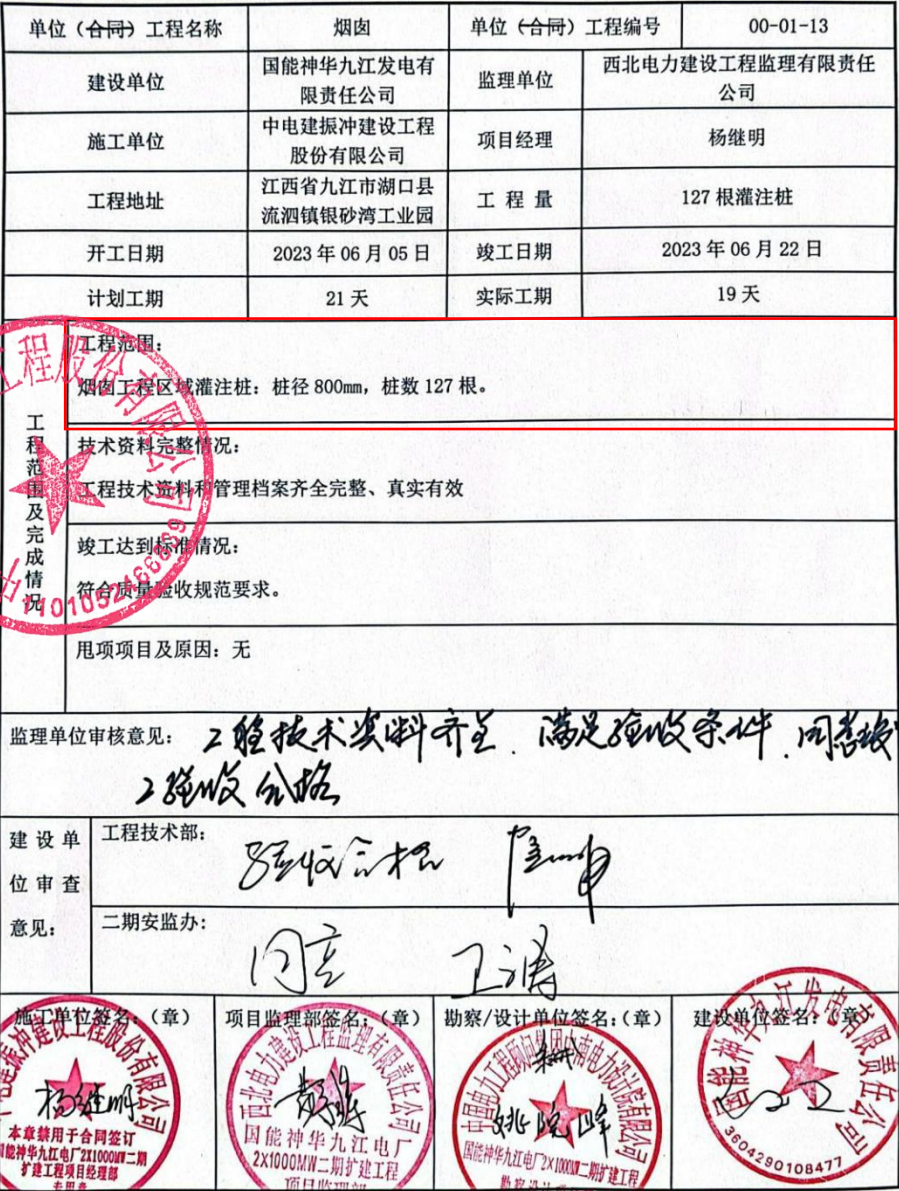 单位（合同）工程名称 烟囱 单位（合同）工程编号 00-01-13
建设单位 国能神华九江发电有
限责任公司 监理单位 西北电力建设工程监理有限责任
公司
施工单位 中电建振冲建设工程
股份有限公司 项目经理 杨继明
工程地址 江西省九江市湖口县
流泗镇银砂湾工业园 工 程 量 127 根灌注桩
开工日期 2023 年 06 月 05 日 竣工日期 2023 年 06 月 22 日
计划工期 21 天 实际工期 19 天
工程范围及完成情况
工程范围：
烟囱工程区域灌注桩：桩径 800mm，桩数 127 根。
技术资料完整情况：
工程技术资料和管理档案齐全完整、真实有效
竣工达到标准情况：
符合质量验收规范要求。
甩项项目及原因：无
工程股份有限公司
监理单位审核意见： 工程技术资料齐全，满足验收条件，同意
验收合格
建 设 单
位 审 查
意见：
工程技术部：
验收合格
二期安监办：
同意 卫涛
施工单位签名：（章） 项目监理部签名：（章） 勘察/设计单位签名：（章） 建设单位签名：（章）
振冲建设工程股份有限公司
杨继明
本章禁用于合同签订
国能神华九江电厂2X1000MW二期
扩建工程项目经理部
专用章
西北电力建设工程监理有限责任公司
国能神华九江电厂
2X1000MW二期扩建工程
项目监理部
中国电力工程顾问集团 电力设计院有限公司
姚 峰
国能神华九江电厂2×1000MW二期扩建工程
勘察设计项目部
国能神华九江发电有限责任公司
3604290108477